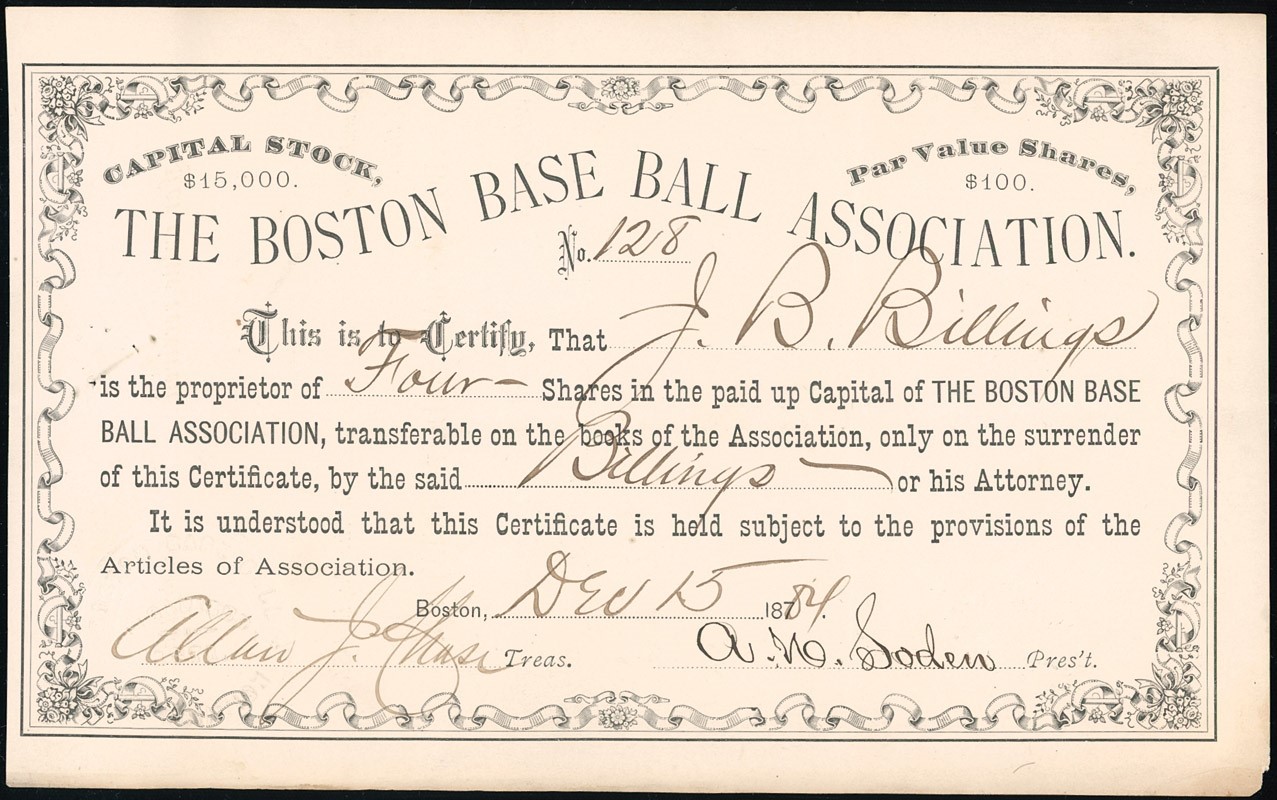 CAPITAL STOCK,
$15,000.
Par Value Shares,
$100.
THE BOSTON BASE BALL ASSOCIATION.
No. 128
This is to Certify, That J. B. Billings
is the proprietor of Four Shares in the paid up Capital of THE BOSTON BASE
BALL ASSOCIATION, transferable on the books of the Association, only on the surrender
of this Certificate, by the said Billings or his Attorney.
It is understood that this Certificate is held subject to the provisions of the
Articles of Association.
Boston, Dec 15 1884.
Allan J. Chase Treas. A. H. Soden Pres't.